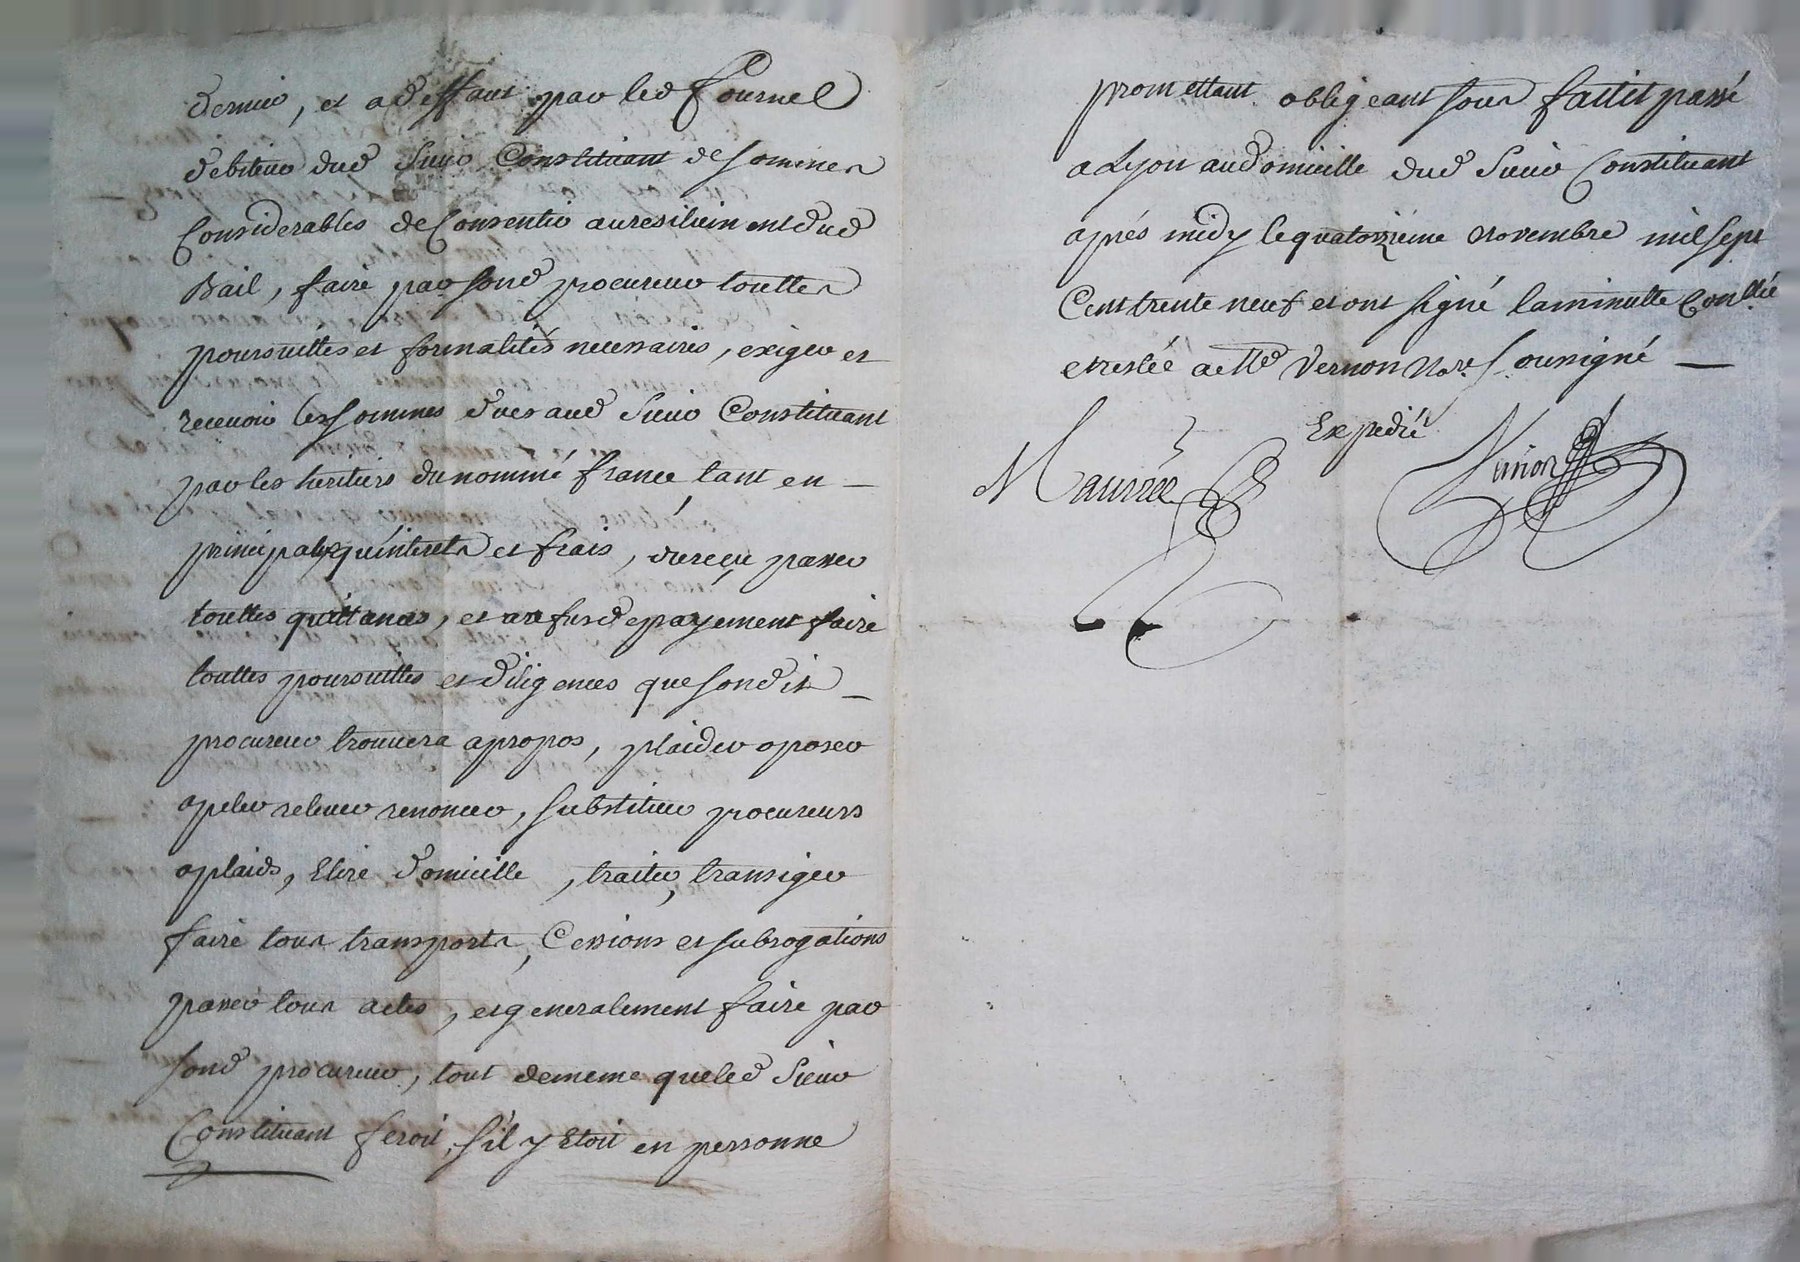 dernier, et a deffaut par led fournel
debiteur dud Sieur Constituant de sommes
Considerables de Consentir au resiliment dud
Bail, faire par sond procureur touttes
poursuittes et formalités necessaires, exiger et
recevoir les sommes dues aud Sieur Constituant
par les heritiers du nommé france tant en
principal qu'interets et frais, du reçu passer
touttes quittances, et au refus de payement faire
touttes poursuittes et diligences que sondit
procureur trouvera apropos, plaider oposer
apeler relever renoncer, substituer procureurs
a plaids, Elire domicille, traiter, transiger
faire tous transports, Cessions et subrogations
passer tous actes, et generalement faire par
sond procureur, tout de meme que led Sieur
Constituant feroit, s'il y Etoit en personne
promettant obligeant sous fait et passé
a Lyon au domicille dud Sieur Constituant
aprés midy le quatorzieme novembre mil sept
Cent trente neuf et ont signé la minutte Conllée
et restée a Me Vernon Nore. soussigné
Expedié
Vernon